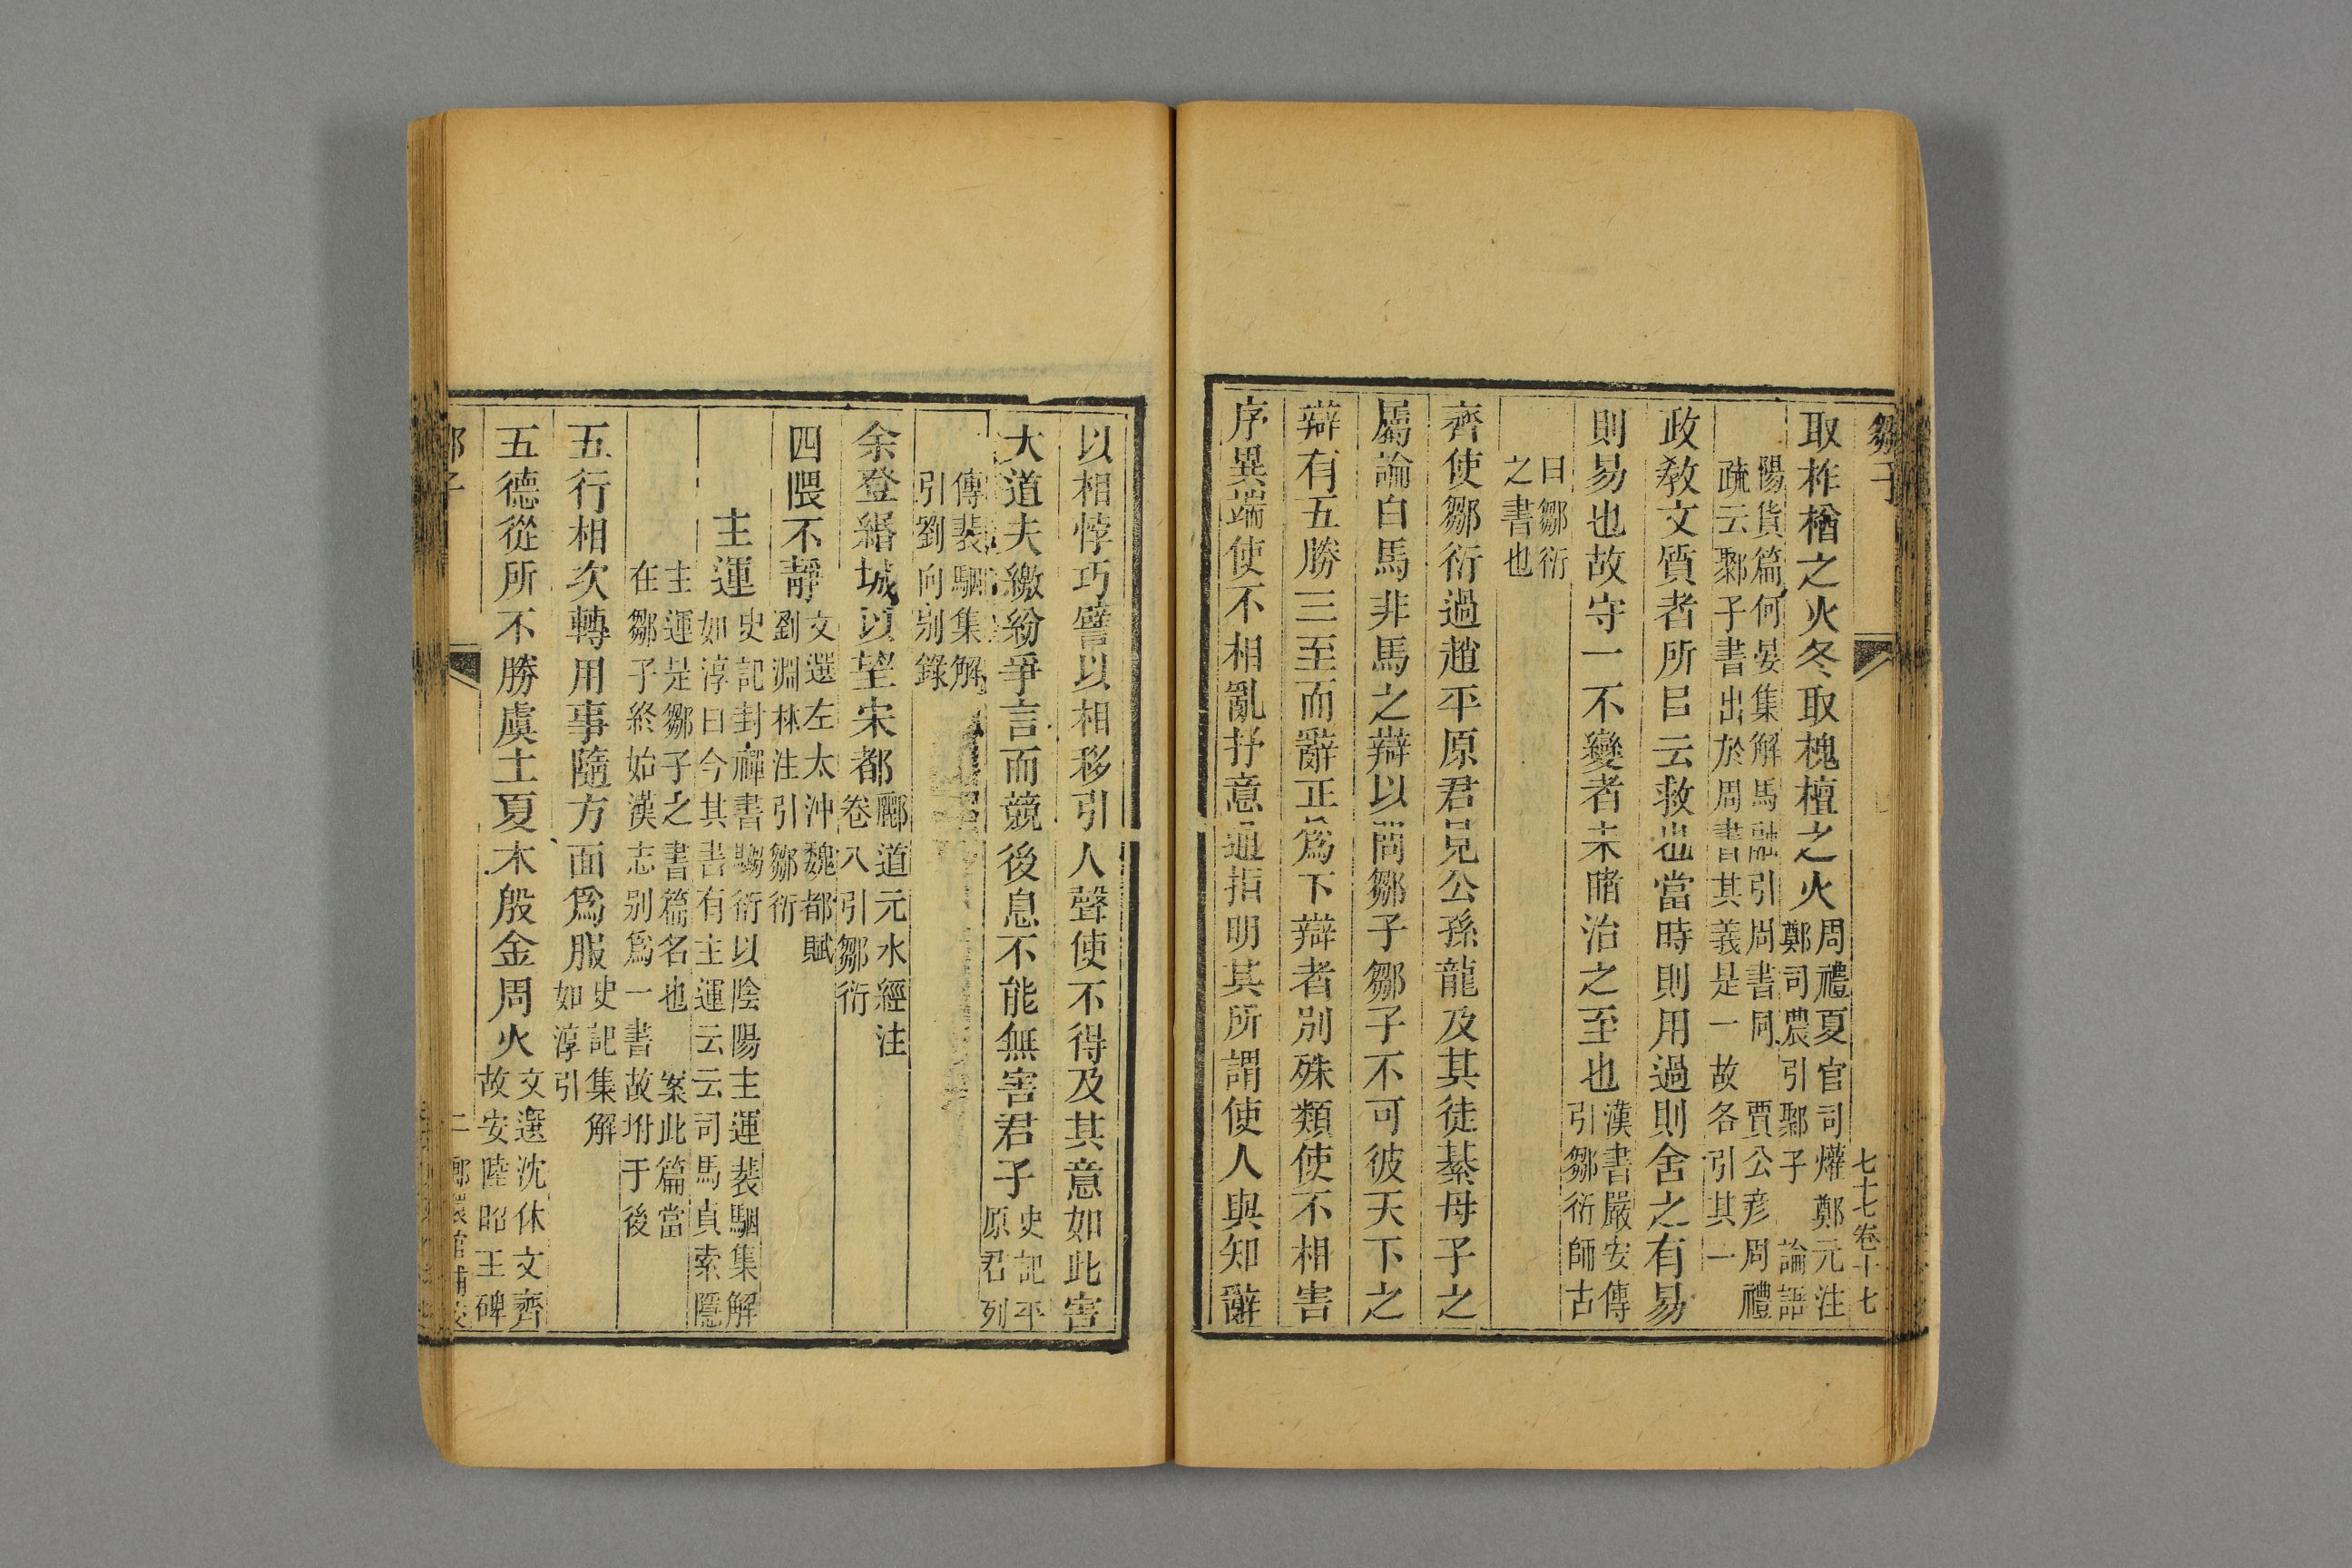 鄒子
七十七卷十七
取柞楢之火冬取槐檀之火周禮夏官司爟鄭元注鄭司農引鄹子 論語
陽貨篇何晏集解馬融引周書同 賈公彥周禮疏云鄹子書出於周書其義是一故各引其一
政教文質者所㠯云救也當時則用過則舍之有易
則易也故守一不變者未睹治之至也漢書嚴安傳引鄒衍師古
曰鄒衍之書也
齊使鄒衍過趙平原君見公孫龍及其徒綦母子之
屬論白馬非馬之辯以問鄒子鄒子不可彼天下之
辯有五勝三至而辭正爲下辯者別殊類使不相害
序異端使不相亂抒意通指明其所謂使人與知辭
以相悖巧譬以相移引人聲使不得及其意如此害
大道夫繳紛爭言而競後息不能無害君子史記平原君列
傳裴駰集解引劉向別錄
余登緡城以望宋都酈道元水經注卷八引鄒衍
四隈不靜文選左太沖魏都賦劉淵林注引鄒衍
主運史記封禪書騶衍以陰陽主運裴駰集解如淳曰今其書有主運云云司馬貞索隱
主運是鄒子之書篇名也 案此篇當在鄒子終始漢志別爲一書故坿于後
五行相次轉用事隨方面爲服史記集解如淳引
五德從所不勝虞土夏木殷金周火文選沈休文齊故安陸昭王碑
二